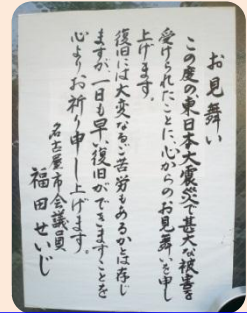 お見舞い
この度の東日本大震災で甚大な被害を
受けられたことに、心からのお見舞いを申し
上げます。
復旧には大変なるご苦労もあるかとは存じ
ますが、一日も早い復旧ができますことを
心よりお祈り申し上げます。
名古屋市会議員
福田せいじ